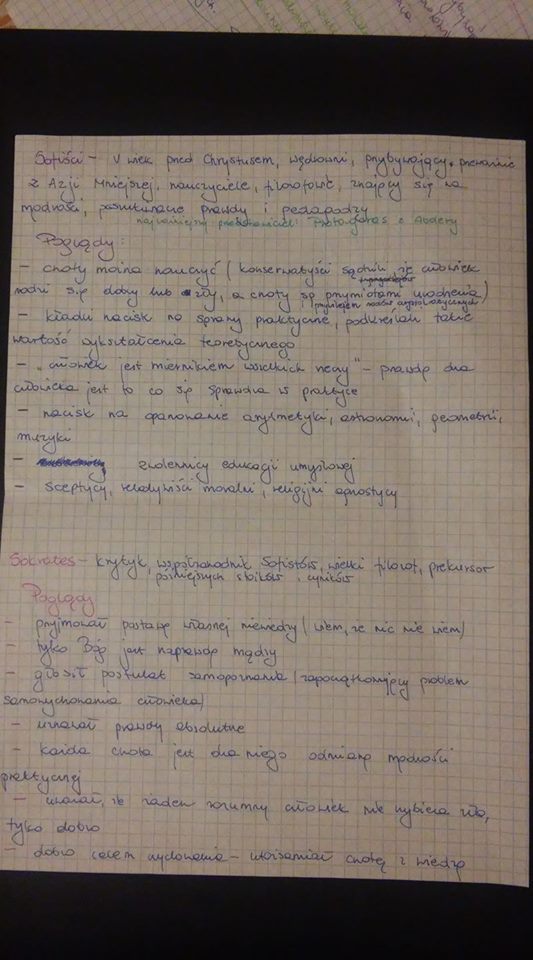 Sofiści - V wiek przed Chrystusem, wędrowni, przybywający przeważnie
z Azji Mniejszej, nauczyciele, filozofowie, znający się na
mądrości, poszukiwacze prawdy i pedagodzy
najważniejszy przedstawiciel: Protagoras z Abdery
Poglądy:
- cnoty można nauczyć (konserwatyści sądzili, że człowiek
rodzi się dobry lub zły, a cnoty są przymiotami urodzenia)
przywilejem rodów arystokratycznych
- kładli nacisk na sprawy praktyczne, podkreślali także
wartość wykształcenia teoretycznego
- "człowiek jest miernikiem wszelkich rzeczy" - prawdą dla
człowieka jest to co się sprawdza w praktyce
- nacisk na opanowanie arytmetyki, astronomii, geometrii,
muzyki
- zwolennicy edukacji umysłowej
- sceptycy, relatywiści moralni, religijni agnostycy
Sokrates - krytyk, współzawodnik Sofistów, wielki filozof, prekursor
późniejszych stoików i cyników
Poglądy
- przyjmował postawę własnej niewiedzy (wiem, że nic nie wiem)
- tylko Bóg jest naprawdę mądry
- głosił postulat samopoznania (zapoczątkowujący problem
samowychowania człowieka)
- uznawał prawdy absolutne
- każda cnota jest dla niego odmianą mądrości
praktycznej
- uważał, że żaden rozumny człowiek nie wybiera zła,
tylko dobro
- dobro celem wychowania - utożsamiał cnotę z wiedzą